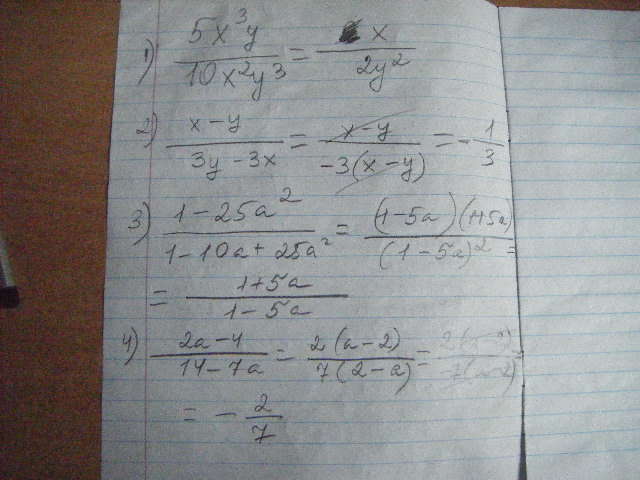 1) 5x³y / 10x²y³ = x / 2y²
2) x-y / 3y-3x = x-y / -3(x-y) = -1/3
3) 1-25a² / 1-10a+25a² = (1-5a)(1+5a) / (1-5a)² =
= 1+5a / 1-5a
4) 2a-4 / 14-7a = 2(a-2) / 7(2-a) = 2(a-2) / -7(a-2)
= -2/7